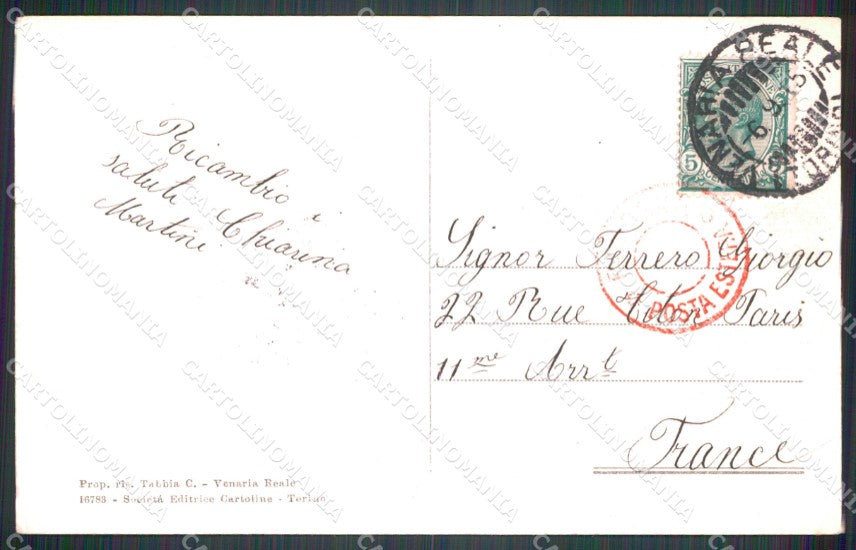 Ricambio i
saluti Chiarina
Martini
Signor Ferrero Giorgio
22 Rue Paris
11me Arrt
France
VENARIA REALE
5
POSTA ESTERA
Prop. ris. Tabbia C. - Venaria Reale
16783 - Societá Editrice Cartoline - Torino
CARTOLINOMANIA